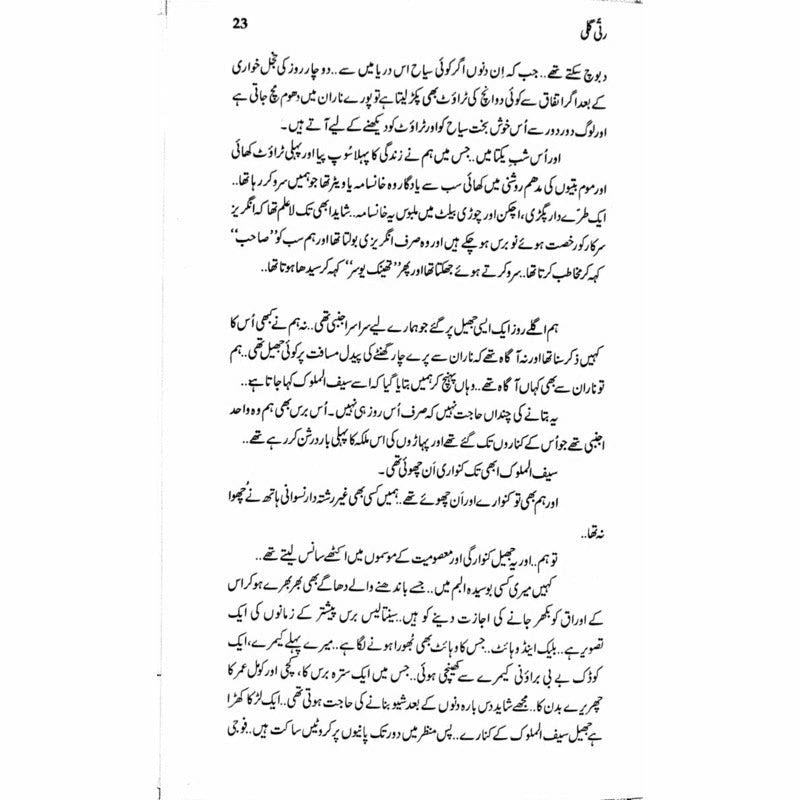 رتّی گلی
23
دبوچ سکتے تھے.. جب کہ اِن دنوں اگر کوئی سیاح اس دریا میں سے.. دو چار روز کی تجل خواری
کے بعد اگر اتفاق سے کوئی دو انچ کی ٹراؤٹ بھی پکڑ لیتا ہے تو پورے ناران میں دھوم مچ جاتی ہے
اور لوگ دور دور سے اُس خوش بخت سیاح کو اور ٹراؤٹ کو دیکھنے کے لیے آتے ہیں۔
اور اُس شبِ یکتا میں.. جس میں ہم نے زندگی کا پہلا سُوپ پیا اور پہلی ٹراؤٹ کھائی
اور موم بتیوں کی مدھم روشنی میں کھائی سب سے یادگار وہ خانسامہ یا ویٹر تھا جو ہمیں سرو کر رہا تھا..
ایک طرّے دار پگڑی، اچکن اور چوڑی بیلٹ میں ملبوس یہ خانسامہ.. شاید ابھی تک لاعلم تھا کہ انگریز
سرکار کو رخصت ہوئے نو برس ہو چکے ہیں اور وہ صرف انگریزی بولتا تھا اور ہم سب کو ”صاحب“
کہہ کر مخاطب کرتا تھا.. سرو کرتے ہوئے جھکتا تھا اور پھر ”تھینک یو سر“ کہہ کر سیدھا ہوتا تھا..
ہم اگلے روز ایک ایسی جھیل پر گئے جو ہمارے لیے سراسر اجنبی تھی.. نہ ہم نے کبھی اُس کا
کہیں ذکر سنا تھا اور نہ آگاہ تھے کہ ناران سے پرے چار گھنٹے کی پیدل مسافت پر کوئی جھیل تھی.. ہم
تو ناران سے بھی کہاں آگاہ تھے.. وہاں پہنچ کر ہمیں بتایا گیا کہ اسے سیف الملوک کہا جاتا ہے..
یہ بتانے کی چنداں حاجت نہیں کہ صرف اُس روز ہی نہیں۔ اُس برس بھی ہم وہ واحد
اجنبی تھے جو اُس کے کناروں تک گئے تھے اور پہاڑوں کی اس ملکہ کا پہلی بار درشن کر رہے تھے..
سیف الملوک ابھی تک کنواری اَن چھوئی تھی۔
اور ہم بھی تو کنوارے اور اَن چھوئے تھے.. ہمیں کسی بھی غیر رشتہ دار نسوانی ہاتھ نے چُھوا
نہ تھا..
تو ہم.. اور یہ جھیل کنوارگی اور معصومیت کے موسموں میں اکٹھے سانس لیتے تھے..
کہیں میری کسی بوسیدہ البم میں.. جسے باندھنے والے دھاگے بھی بھربھرے ہو کر اس
کے اوراق کو بکھر جانے کی اجازت دینے کو ہیں.. سینتالیس برس پیشتر کے زمانوں کی ایک
تصویر ہے.. بلیک اینڈ وہائٹ.. جس کا وہائٹ بھی بُھورا ہونے لگا ہے.. میرے پہلے کیمرے، ایک
کوڈک بے بی براؤنی کیمرے سے کھینچی ہوئی.. جس میں ایک سترہ برس کا، کچی اور کومل عمر کا
چھریرے بدن کا.. مجھے شاید دس بارہ دنوں کے بعد شیو بنانے کی حاجت ہوتی تھی.. ایک لڑکا کھڑا
ہے جھیل سیف الملوک کے کنارے.. پس منظر میں دور تک پانیوں پر کروٹیں ساکت ہیں.. فوجی